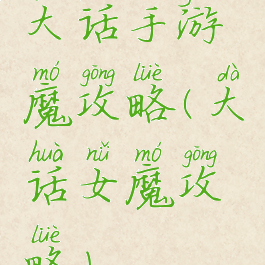 大话手游
mó gōng lüè dà
魔攻略(大
huà nǚ mó gōng
话女魔攻
lüè
略)